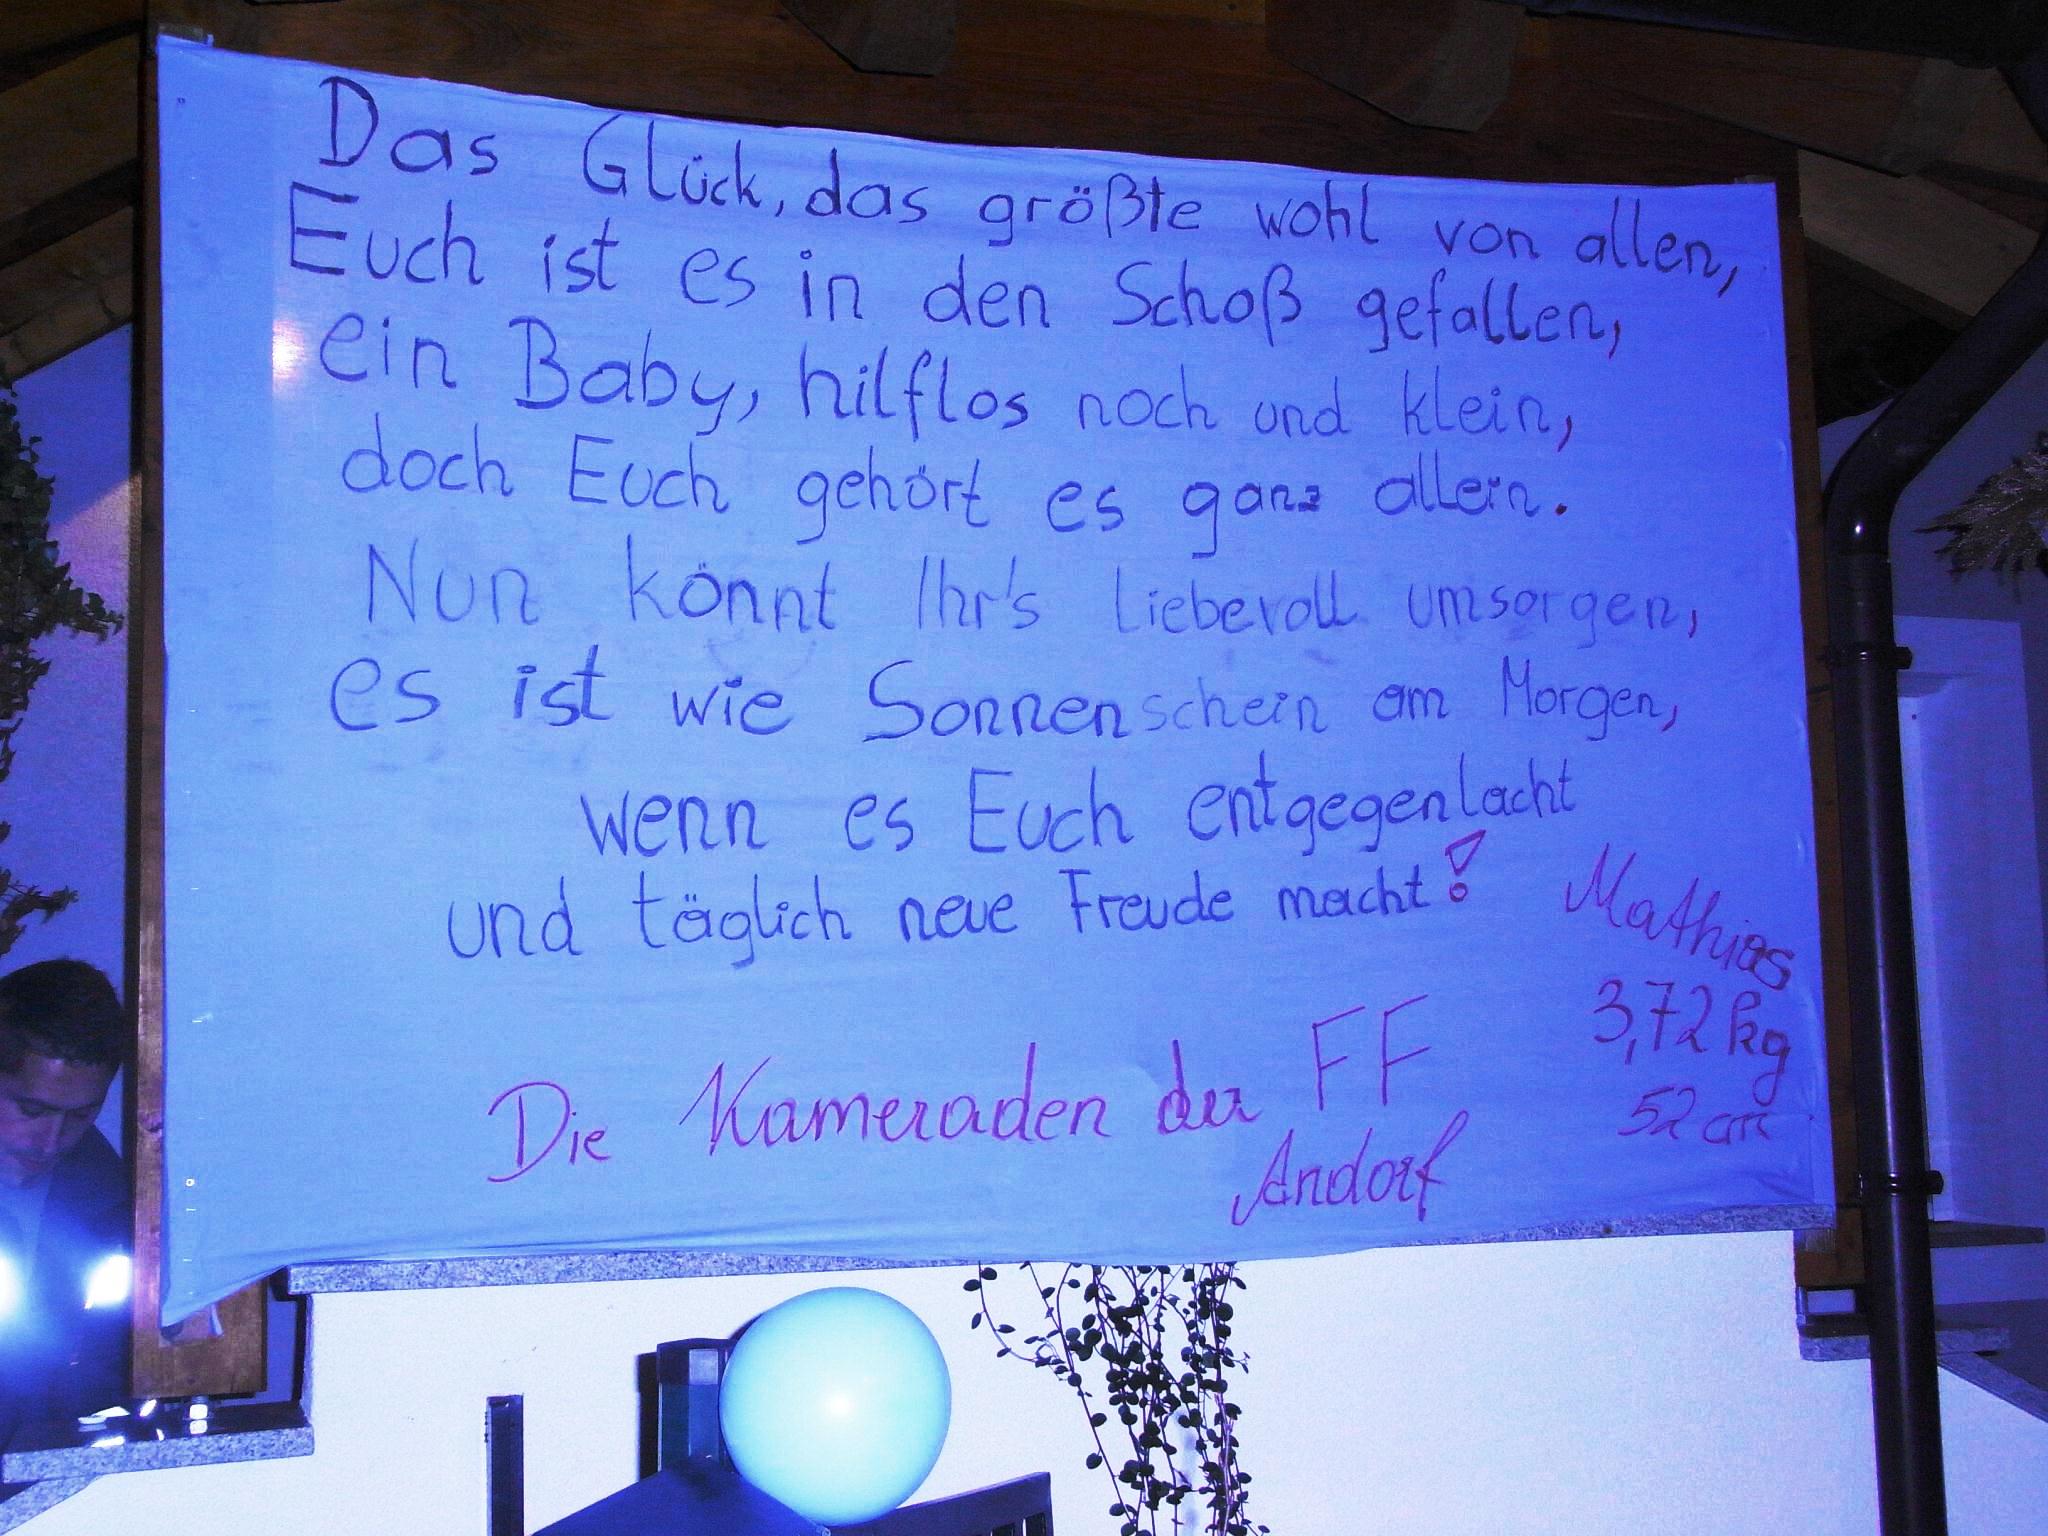 Das Glück, das größte wohl von allen,
Euch ist es in den Schoß gefallen,
ein Baby, hilflos noch und klein,
doch Euch gehört es ganz allein.
Nun könnt Ihr's liebevoll umsorgen,
es ist wie Sonnenschein am Morgen,
wenn es Euch entgegenlacht
und täglich neue Freude macht!
Mathias
3,72 kg
52 cm
Die Kameraden der FF
Andorf